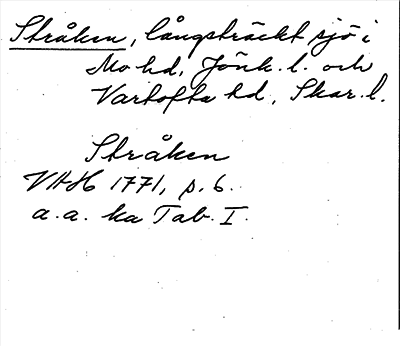 Stråken, långsträckt sjö i
Mo hd, Jönk. l. och
Vartofta hd, Skar. l.
Stråken
VAH 1771, s. 6.
a.a. ka Tab. I.